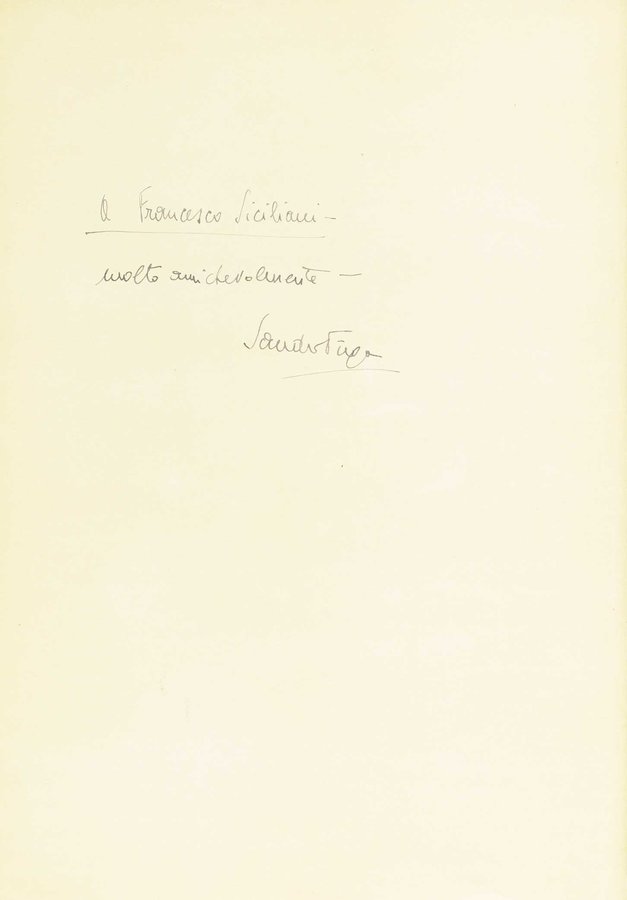 A Francesco Siciliani -
molto amichevolmente -
Sandro Fuga